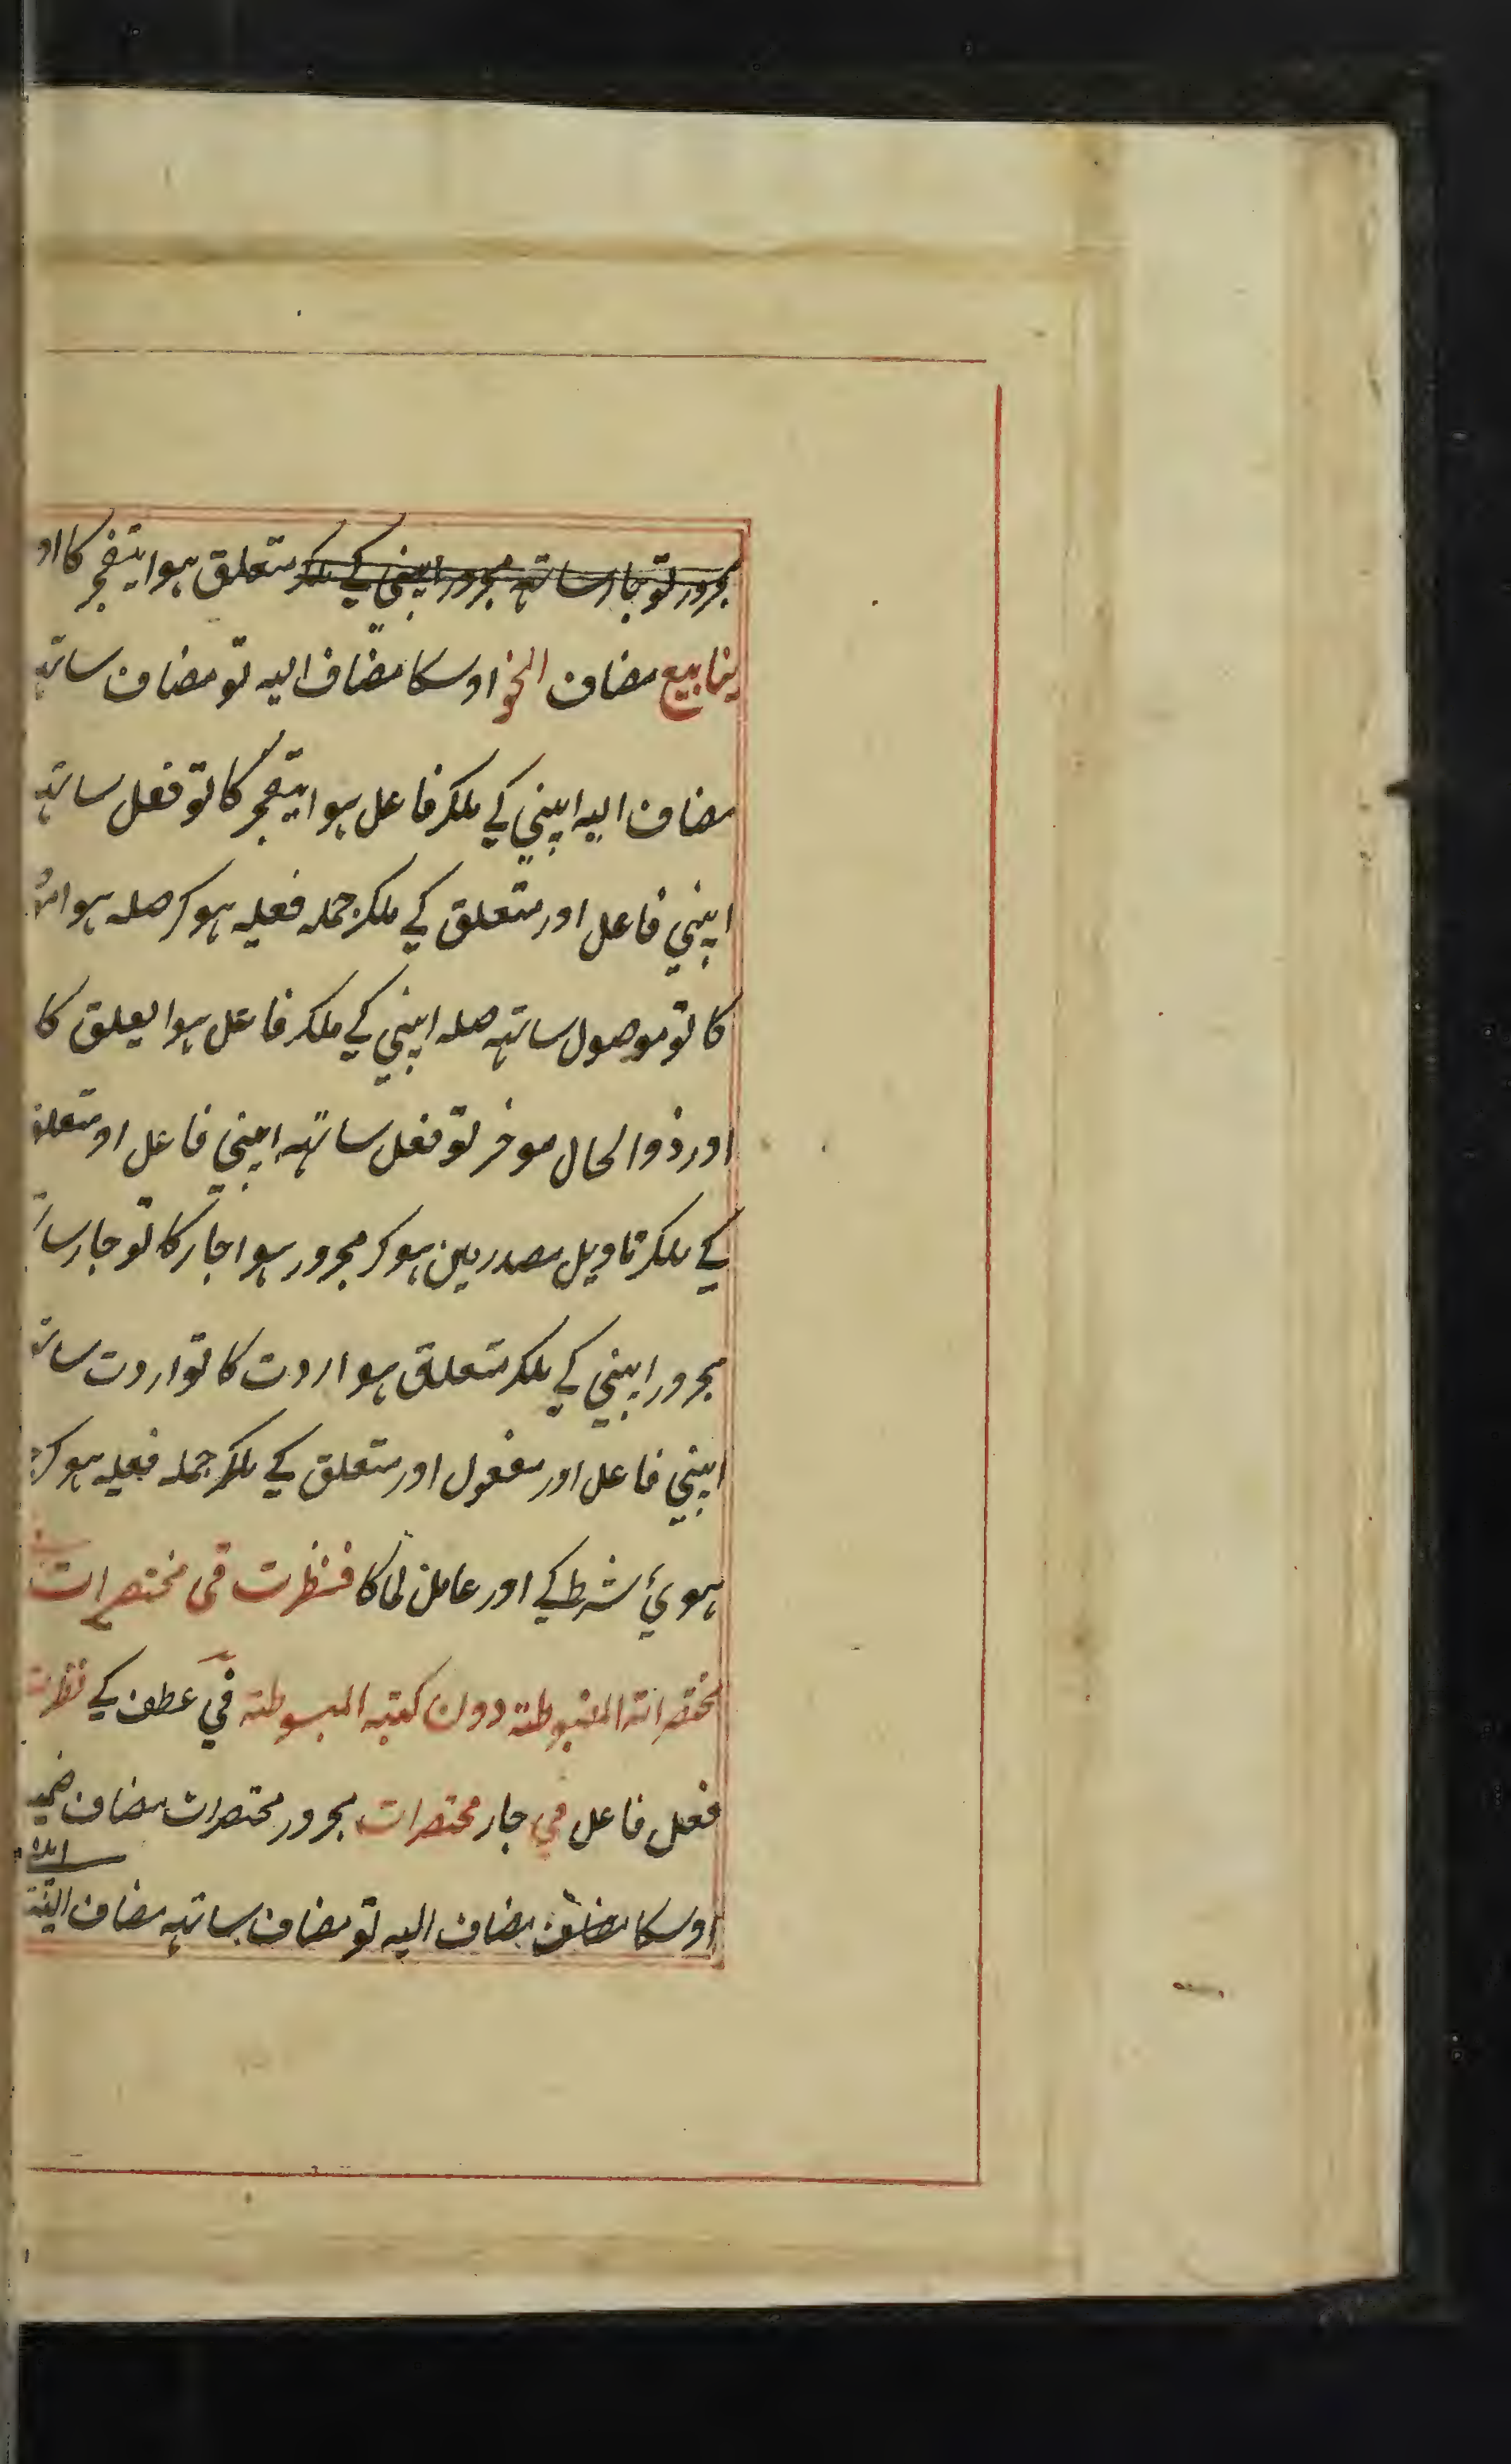 مجرور تو جار ساتہہ مجرور اپنی کے ملکر متعلق ہوا یتفجر کا او
ینابیع مضاف النحو اوسکا مضاف الیہ تو مضاف ساتہہ
مضاف الیہ اپنی کے ملکر فاعل ہوا یتفجر کا تو فعل ساتہہ
اپنی فاعل اور متعلق کے ملکر جملہ فعلیہ ہو کر صلہ ہوا
کا تو موصول ساتہہ صلہ اپنی کے ملکر فاعل ہوا یعلق کا
اور ذوالحال موخر تو فعل ساتہہ اپنی فاعل او متعلق
کے ملکر تاویل مصدر مین ہو کر مجرور ہوا جار کا تو جار سا
مجرور اپنی کے ملکر متعلق ہوا اردت کا تو اردت سات
اپنی فاعل اور مفعول اور متعلق کے ملکر جملہ فعلیہ ہو کر
ہویٔ شرط کے اور عامل لما کا فنظرت فی مختصرات
مختصراتہ المضبوطتہ دون کتبہ المبسوطتہ فی عطف کے نظرت
فعل فاعل فی جار مختصرات مجرور مختصرات مضاف ضمیر
اوسکا مضاف الیہ تو مضاف ساتہہ مضاف الیہ